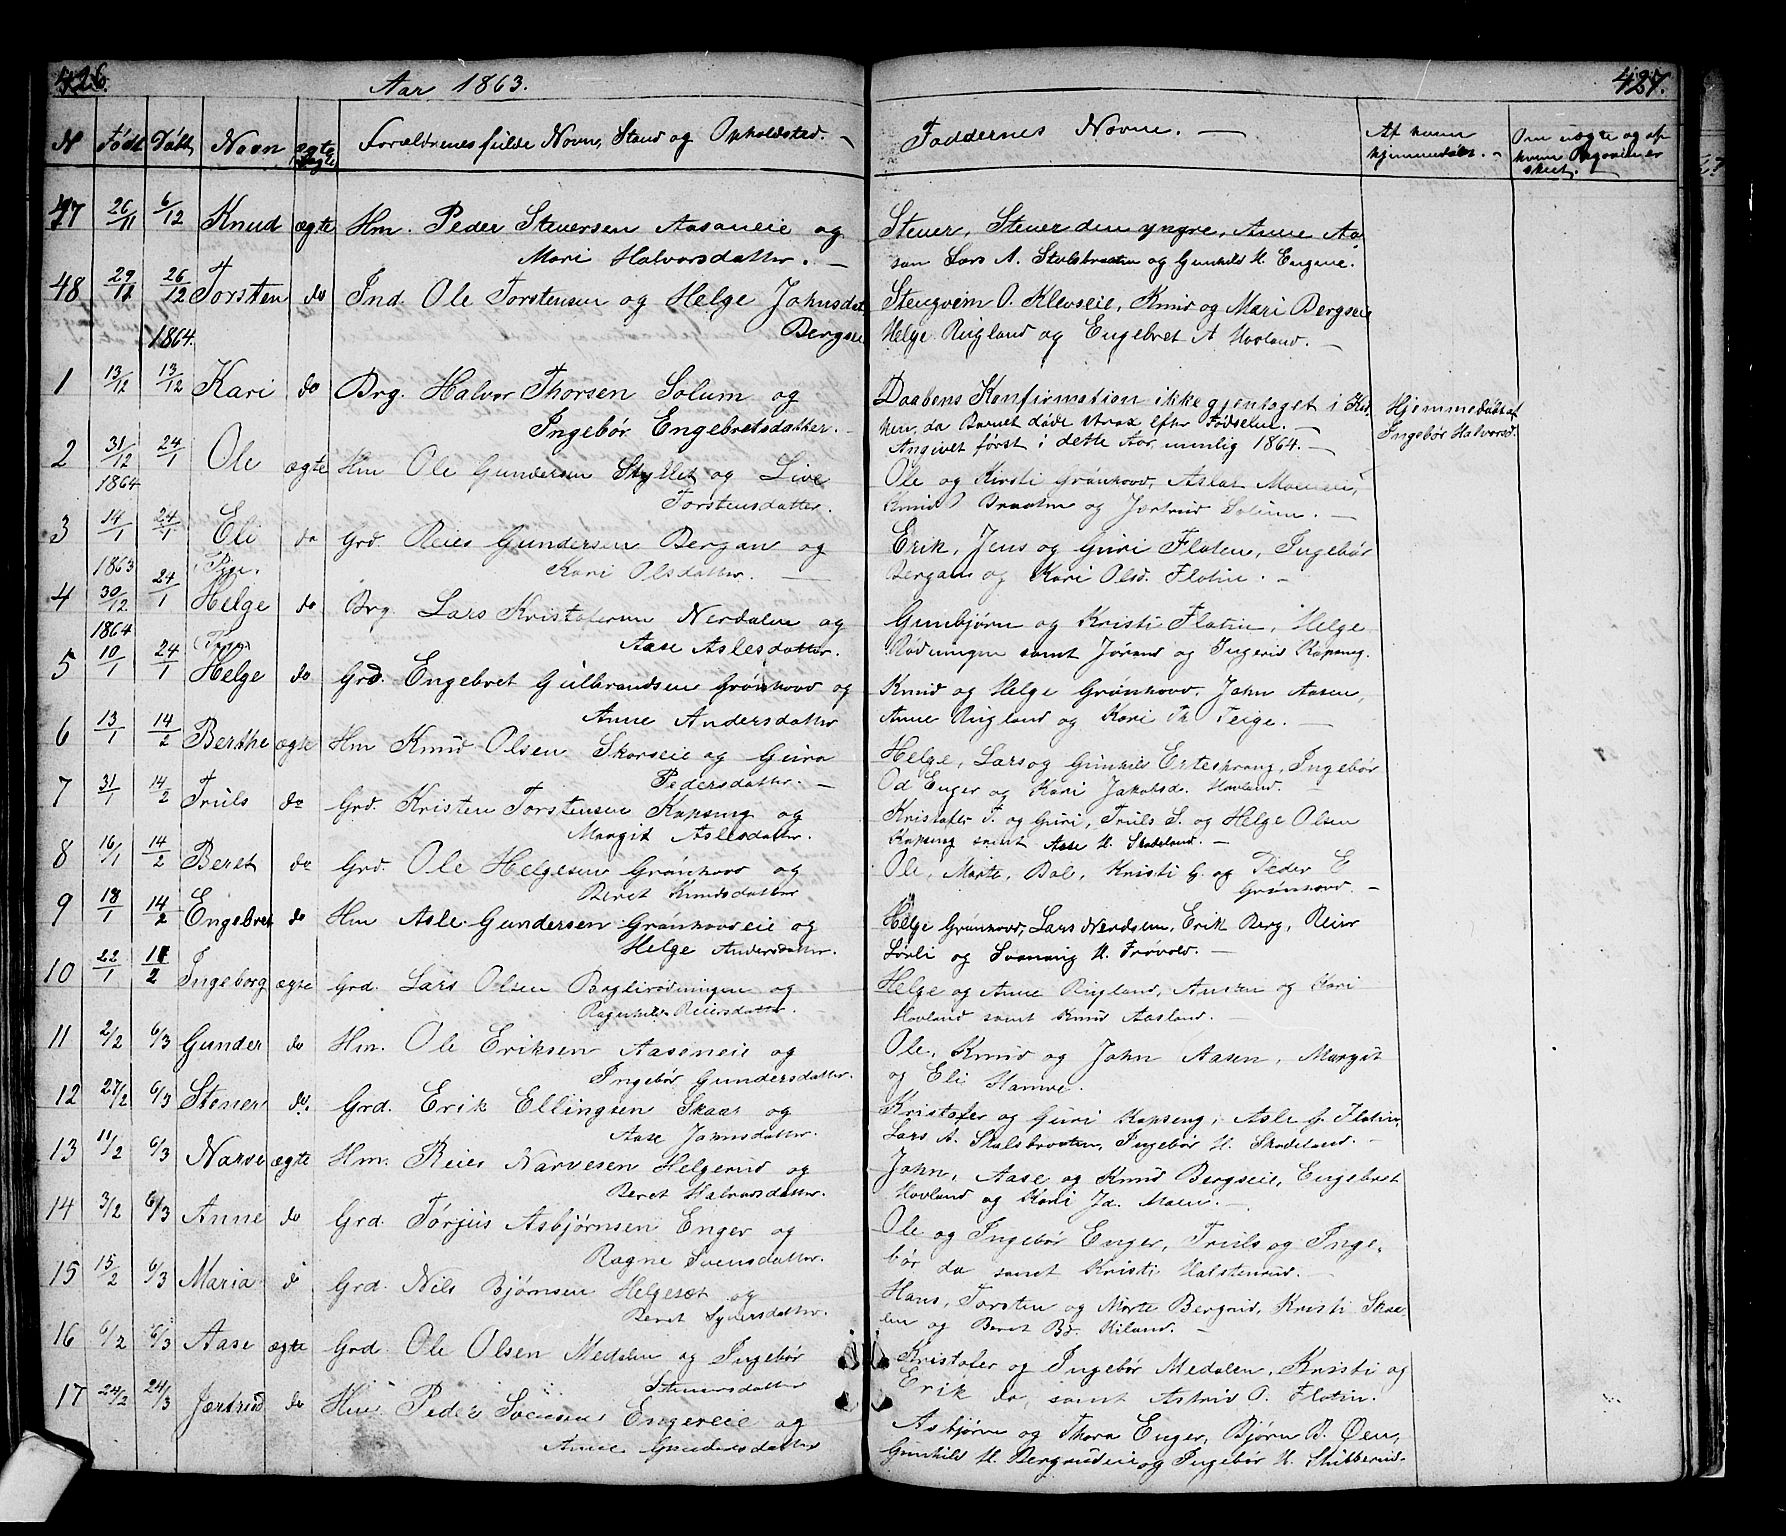 426.
Aar 1863.
N Født Døbt Navn ægte uægte Forældrenes fulde Navn, Stand og Opholdsted. —
47 26/11 6/12 Knud ægte Hm. Peder Steversen Aasaneie og
Mari Halvorsdatter. —
48 29/11 26/12 Torsten do Ind. Ole Torstensen og Helge Johnsdat
Bergseie
1864.
1 13/12 13/12 Kari do Brg. Halvor Thorsen Solum og
Ingebør Engebretsdatter. —
2 31/12 24/1 Ole ægte Hm Ole Gundersen Skyllet og Live
1864 Torstensdatter.
3 14/1 24/1 Eli do Grd. Reier Gundersen Bergan og
1863 Kari Olsdatter. —
4 30/12 24/1 Helge do Brg. Lars Kristofersen Nerdalen og
1864 Aase Aslesdatter.
5 10/1 24/1 Helge do Grd. Engebret Gulbrandsen Grønhovd og
Anne Andersdatter
6 13/1 14/2 Berthe ægte Hm Knud Olsen Skarseie og Guro
Pedersdatter. —
7 31/1 14/2 Truls do Grd. Kristen Torstensen Kapseng og
Margit Aslesdatter.
8 16/1 14/2 Beret do Grd. Ole Helgesen Grønhovd og
Beret Knudsdatter
9 18/1 14/2 Engebret do Hm Asle Gundersen Grønhovdeie og
Helge Andersdatter.
10 22/1 14/2 Ingeborg ægte Grd. Lars Olsen Baglirødningen og
Ragnhild Reiersdatter.
11 2/2 6/3 Gunder do Hm. Ole Eriksen Aaseneie og
Ingebør Gundersdatter.
12 27/2 6/3 Stener do. Grd. Erik Ellingsen Skaar og
Aase Johnsdatter.
13 11/2 6/3 Narve ægte Hm. Reier Narvesen Helgerud og
Beret Halvorsdatter.
14 3/2 6/3 Anne do Grd. Torjus Asbjørnsen Enger og
Ragne Svensdatter.
15 15/2 6/3 Maria do Grd. Nils Bjørnsen Helgeset og
Beret Syversdatter.
16 6/2 6/3 Aase ægte Grd. Ole Olsen Medalen og Ingebør
Stenersdatter
17 24/2 24/3 Jertrud do Hm. Peder Svensen Engereie og
Anne Gundersdatter
427.
Faddernes Navne. —
Af hvem hjemmedøbt. —
Om uægte og af hvem Angivelse skeet. —
Stener, Stener den yngre, Anne Aa
san Lars A. Stolsbraaten og Gunhild H. Engene.
Stengrim O. Klevseie, Knud og Mari Bergseie
Helge Rugland og Engebret A Hovland. —
Daabens Konfirmation ikke gjentaget i Kir
ken, da Barnet døde strax efter Fødselen. —
Angivet først i dette Aar, nemlig 1864. —
Hjemmedøbt af
Ingebør Halvorsd.
Ole og Kirsti Grønhovd, Aslat Moeneie,
Knud Braaten og Jertrud Solum. —
Erik, Jens og Guri Flaten, Ingebør
Bergan og Kari Olsd. Flatin. —
Gunbjørn og Kristi Flatin, Helge
Rødningen samt Jorand og Ingerid Kapseng.
Knud og Helge Grønhovd, John Aasen,
Anne Rugland og Kari Th Teige. —
Helge, Lars og Gunhild Ertesprang, Ingebør
Od Enger og Kari Jakobsd. Hovland. —
Kristofer T. og Guri, Truls S. og Helge Olsen
Kapseng samt Aase H. Skadeland. —
Ole, Marte, Bol, Kristi G. og Peder E
Grønhovd. —
Helge Grønhovd, Lars Nerdalen, Erik Berg, Reier
Lovli og Svanaug H. Frøvold. —
Helge og Anne Rugland, Anders og Kari
Hovland samt Knud Aasland. —
Ole, Knud og John Aasen, Margit
og Eli Hamre.
Kristofer og Guri Kapseng, Asle G. Flatin,
Lars A. Stalsbraaten, Ingebør H. Skadeland. —
John, Aase og Knud Bergseie, Engebret
Hovland og Kari Ja. Moen. —
Ole og Ingebør Enger, Truls og Inge-
bør do samt Kristi Halstenrud. —
Hans, Torsten og Marte Bergrud, Kristi Skaa-
len og Beret Bd. Kiland. —
Kristofer og Ingebør Medalen, Kristi og
Erik do, samt Astrid O. Flatin.
Asbjørn og Thora Enger, Bjørn B. Øen,
Gunhild H. Bergrudeie og Ingebør H. Skibberud.